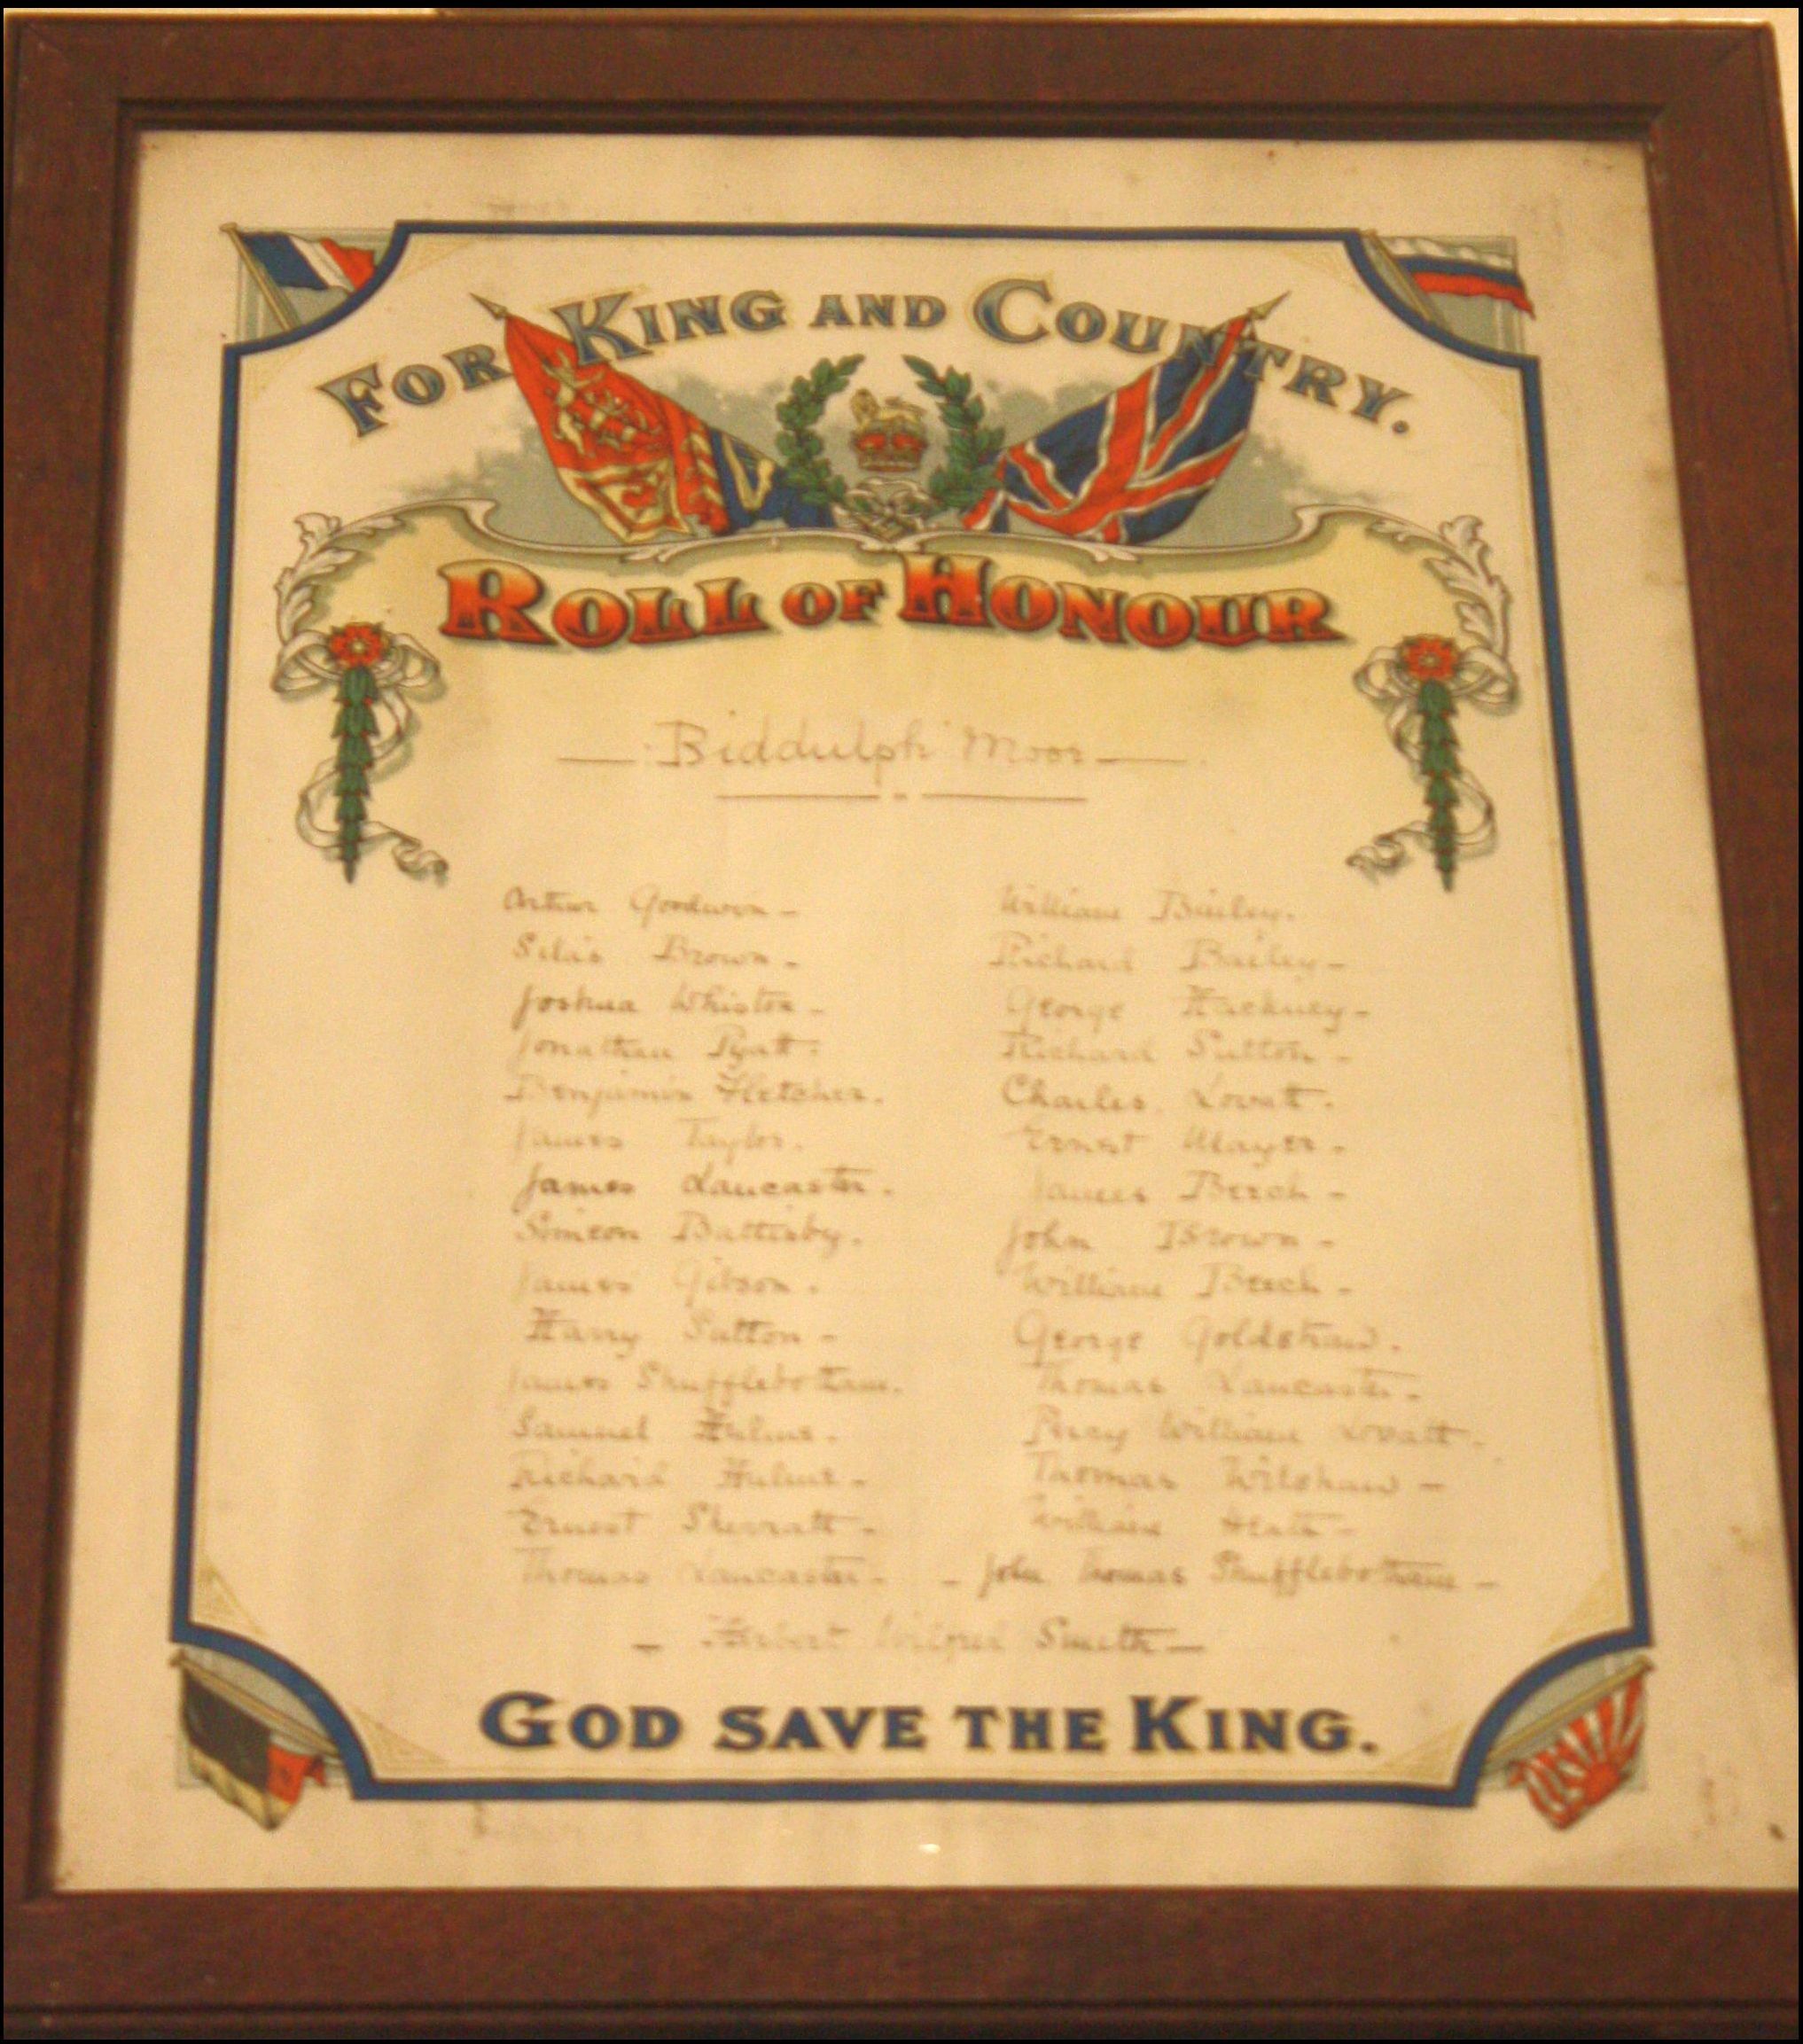 FOR KING AND COUNTRY.
ROLL OF HONOUR
Biddulph Moor
Arthur Goodwin - William Bailey.
Silas Brown - Richard Bailey -
Joshua Whiston - George Hackney -
Jonathan Pyatt. Richard Sutton -
Benjamin Fletcher. Charles Lovatt.
James Taylor. Ernest Mayer -
James Lancaster. James Beech -
Simeon Battisby. John Brown -
James Gibson. William Beech -
Harry Sutton - George Goldstraw.
James Shufflebotham. Thomas Lancaster -
Samuel Hulme. Percy William Lovatt.
Richard Hulme - Thomas Wilshaw -
Ernest Sherratt - William Heath -
Thomas Lancaster - - John Thomas Shufflebotham -
- Herbert Wilfred Smith -
GOD SAVE THE KING.